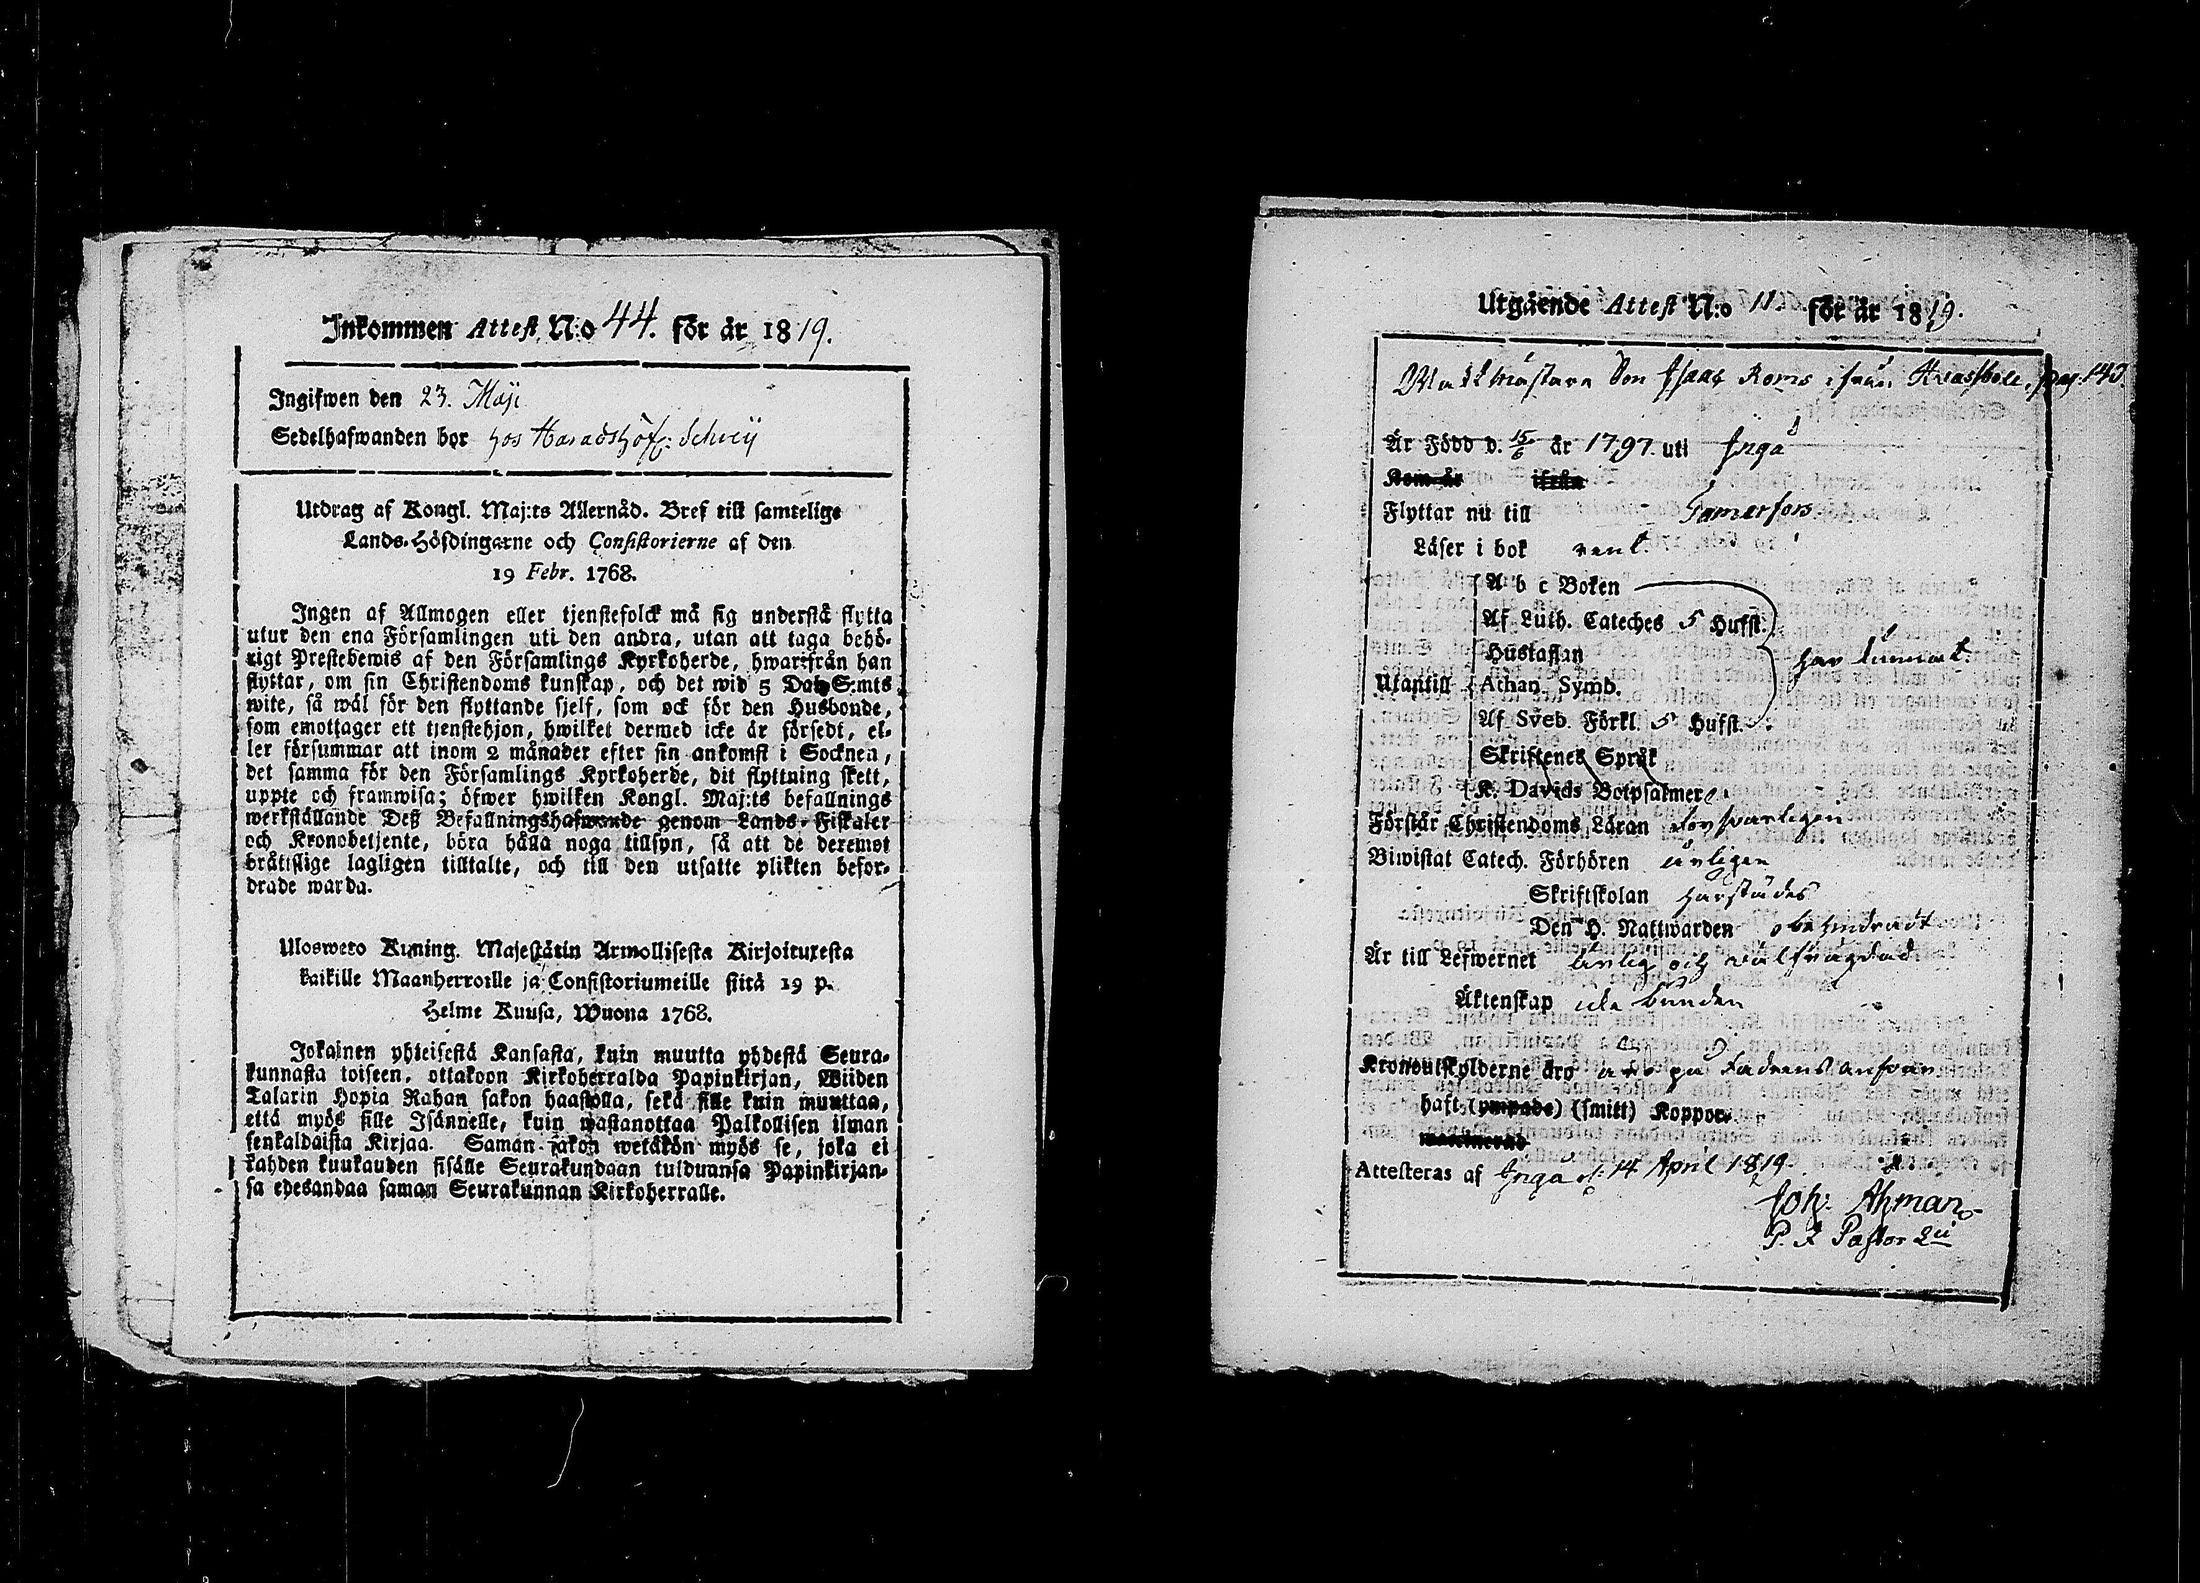 Inkommen Attest N:o 44. för år 1819.
Ingifwen den 23. Maji
Sedelhafwanden bor hos Haradshöf: Schvij
Utdrag af Kongl. Maj:ts Allernåd. Bref till samtelige
Lands-Höfdingarne och Consistorierne af den
19 Febr. 1768.
Ingen af Allmogen eller tjenstefolck må sig understå flytta
utur den ena Församlingen uti den andra, utan att taga behö-
rigt Prestebewis af den Församlings Kyrkoherde, hwarifrån han
flyttar, om sin Christendoms kunskap, och det wid 5 Dal. S:mts
wite, så wäl för den flyttande sjelf, som ock för den Husbonde,
som emottager ett tjenstehjon, hwilket dermed icke är försedt, el-
ler försummar att inom 2 månader efter sin ankomst i Socknen,
det samma för den Församlings Kyrkoherde, dit flyttning skett,
uppte och framwisa; öfwer hwilken Kongl. Maj:ts befallnings
werkställande Deß Befallningshafwande genom Lands-Fiskaler
och Kronobetjente, böra hålla noga tillsyn, så att de deremot
bråttslige lagligen tilltalte, och till den utsatte plikten befor-
drade warda.
Uloswето Kuning. Majestätin Armollisesta Kirjoituxesta
kaikille Maanherroille ja Consistoriumeille siitä 19 p.
Helme Kuusa, Wuona 1768.
Jokainen yhteisestä Kansasta, kuin muutta yhdestä Seura-
kunnasta toiseen, ottakoon Kirkoherralda Papinkirjan, Wiiden
Talarin Hopia Rahan sakon haastolla, sekä sille kuin muuttaa,
että myös sille Isännelle, kuin wastanottaa Palkollisen ilman
senkaldaista Kirjaa. Saman sakon wetäkön myös se, joka ei
kahden kuukauden sisälle Seurakundaan tulduansa Papinkirjan-
sa edesandaa saman Seurakunnan Kirkoherralle.
Utgående Attest N:o 11. för år 1819.
Son Isaac Roms ifrån Krassbole, pag. 143
Är Född d. 15/6 år 1797. uti Ingå
Kom år ifrån
Flyttar nu till Tamerfors
Läser i bok rent.
A b c Boken
Af Luth. Cateches 5 Hufst.
Hustaflan
har lärnat.
Utantill Athan. Symb.
Af Sveb. Förkl. 5 Hufst.
Skriftenes Språk
K. Davids Botpsalmer
Förstår Christendoms Läran försvarligen
Biwistat Catech. Förhören årligen
Skriftskolan härstädes
Den H. Nattwarden obehindradt
Är till Lefwernet ärlig och välfrägdad
Äktenskap icke bunden
Kronoutskylderne äro på Fadrens ansvar
haft (ympade) (smitt) Koppor.
Attesteras af Ingå d: 14 April 1819.
Joh: Ahman
P. I Pastor